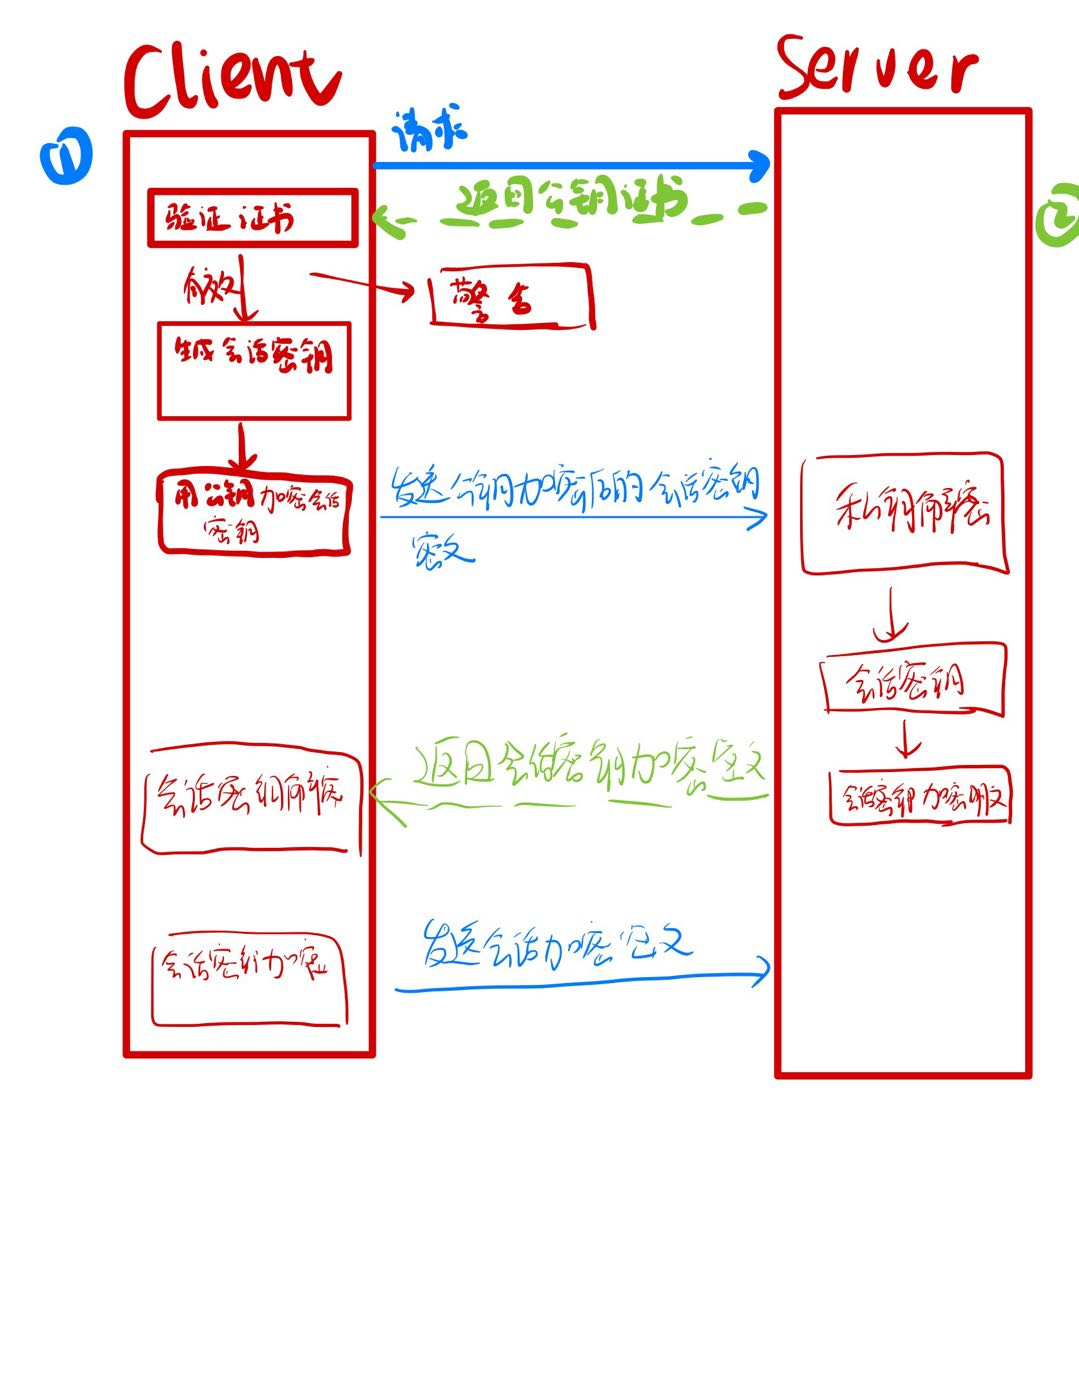 Client
Server
①
请求
返回公钥证书
②
验证证书
有效
警告
生成会话密钥
用公钥加密会话
密钥
发送公钥加密后的会话密钥
密文
私钥解密
会话密钥
返回会话密钥加密密文
会话密钥加密明文
会话密钥解密
发送会话加密密文
会话密钥加密